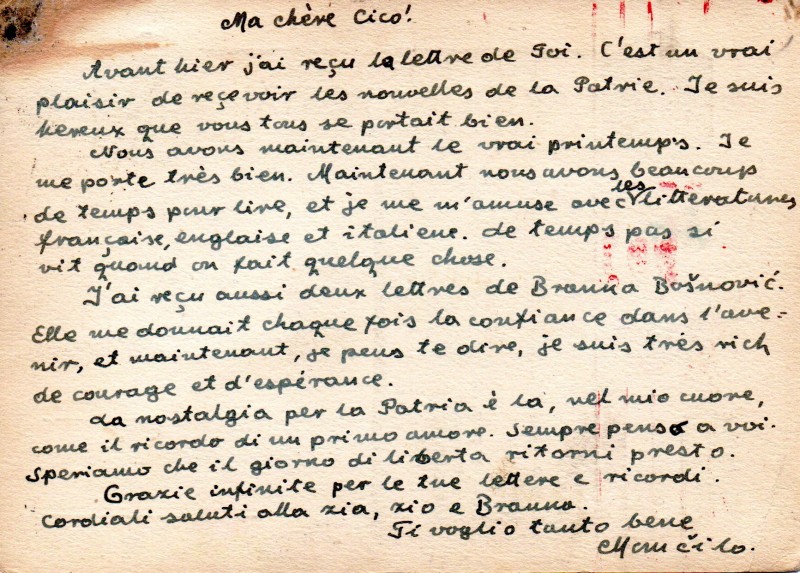 Ma chère Cico!
Avant hier j'ai reçu la lettre de Toi. C'est un vrai
plaisir de reçevoir les nouvelles de la Patrie. Je suis
hereux que vous tous se portait bien.
Nous avons maintenant le vrai printemps. Je
me porte très bien. Maintenant nous avons beaucoup
de temps pour lire, et je me m'amuse avec les litteratures
française, englaise et italiene. de temps pas si
vit quand on fait quelque chose.
J'ai reçu aussi deux lettres de Branka Bošnović.
Elle me donnait chaque fois la confiance dans l'ave-
nir, et maintenant, je peus te dire, je suis très rich
de courage et d'espérance.
La nostalgia per la Patria è la, nel mio cuore,
come il ricordo di un primo amore. Sempre penso a voi.
Speriamo che il giorno di liberta ritorni presto.
Grazie infinite per le tue lettere e ricordi.
Cordiali saluti alla zia, zio e Branka.
Ti voglio tanto bene
Momčilo.